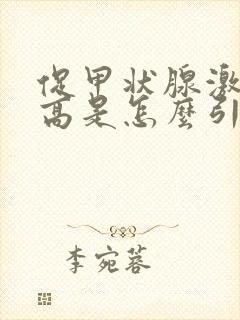 促甲状腺激
高是怎麼引
李宛蓉